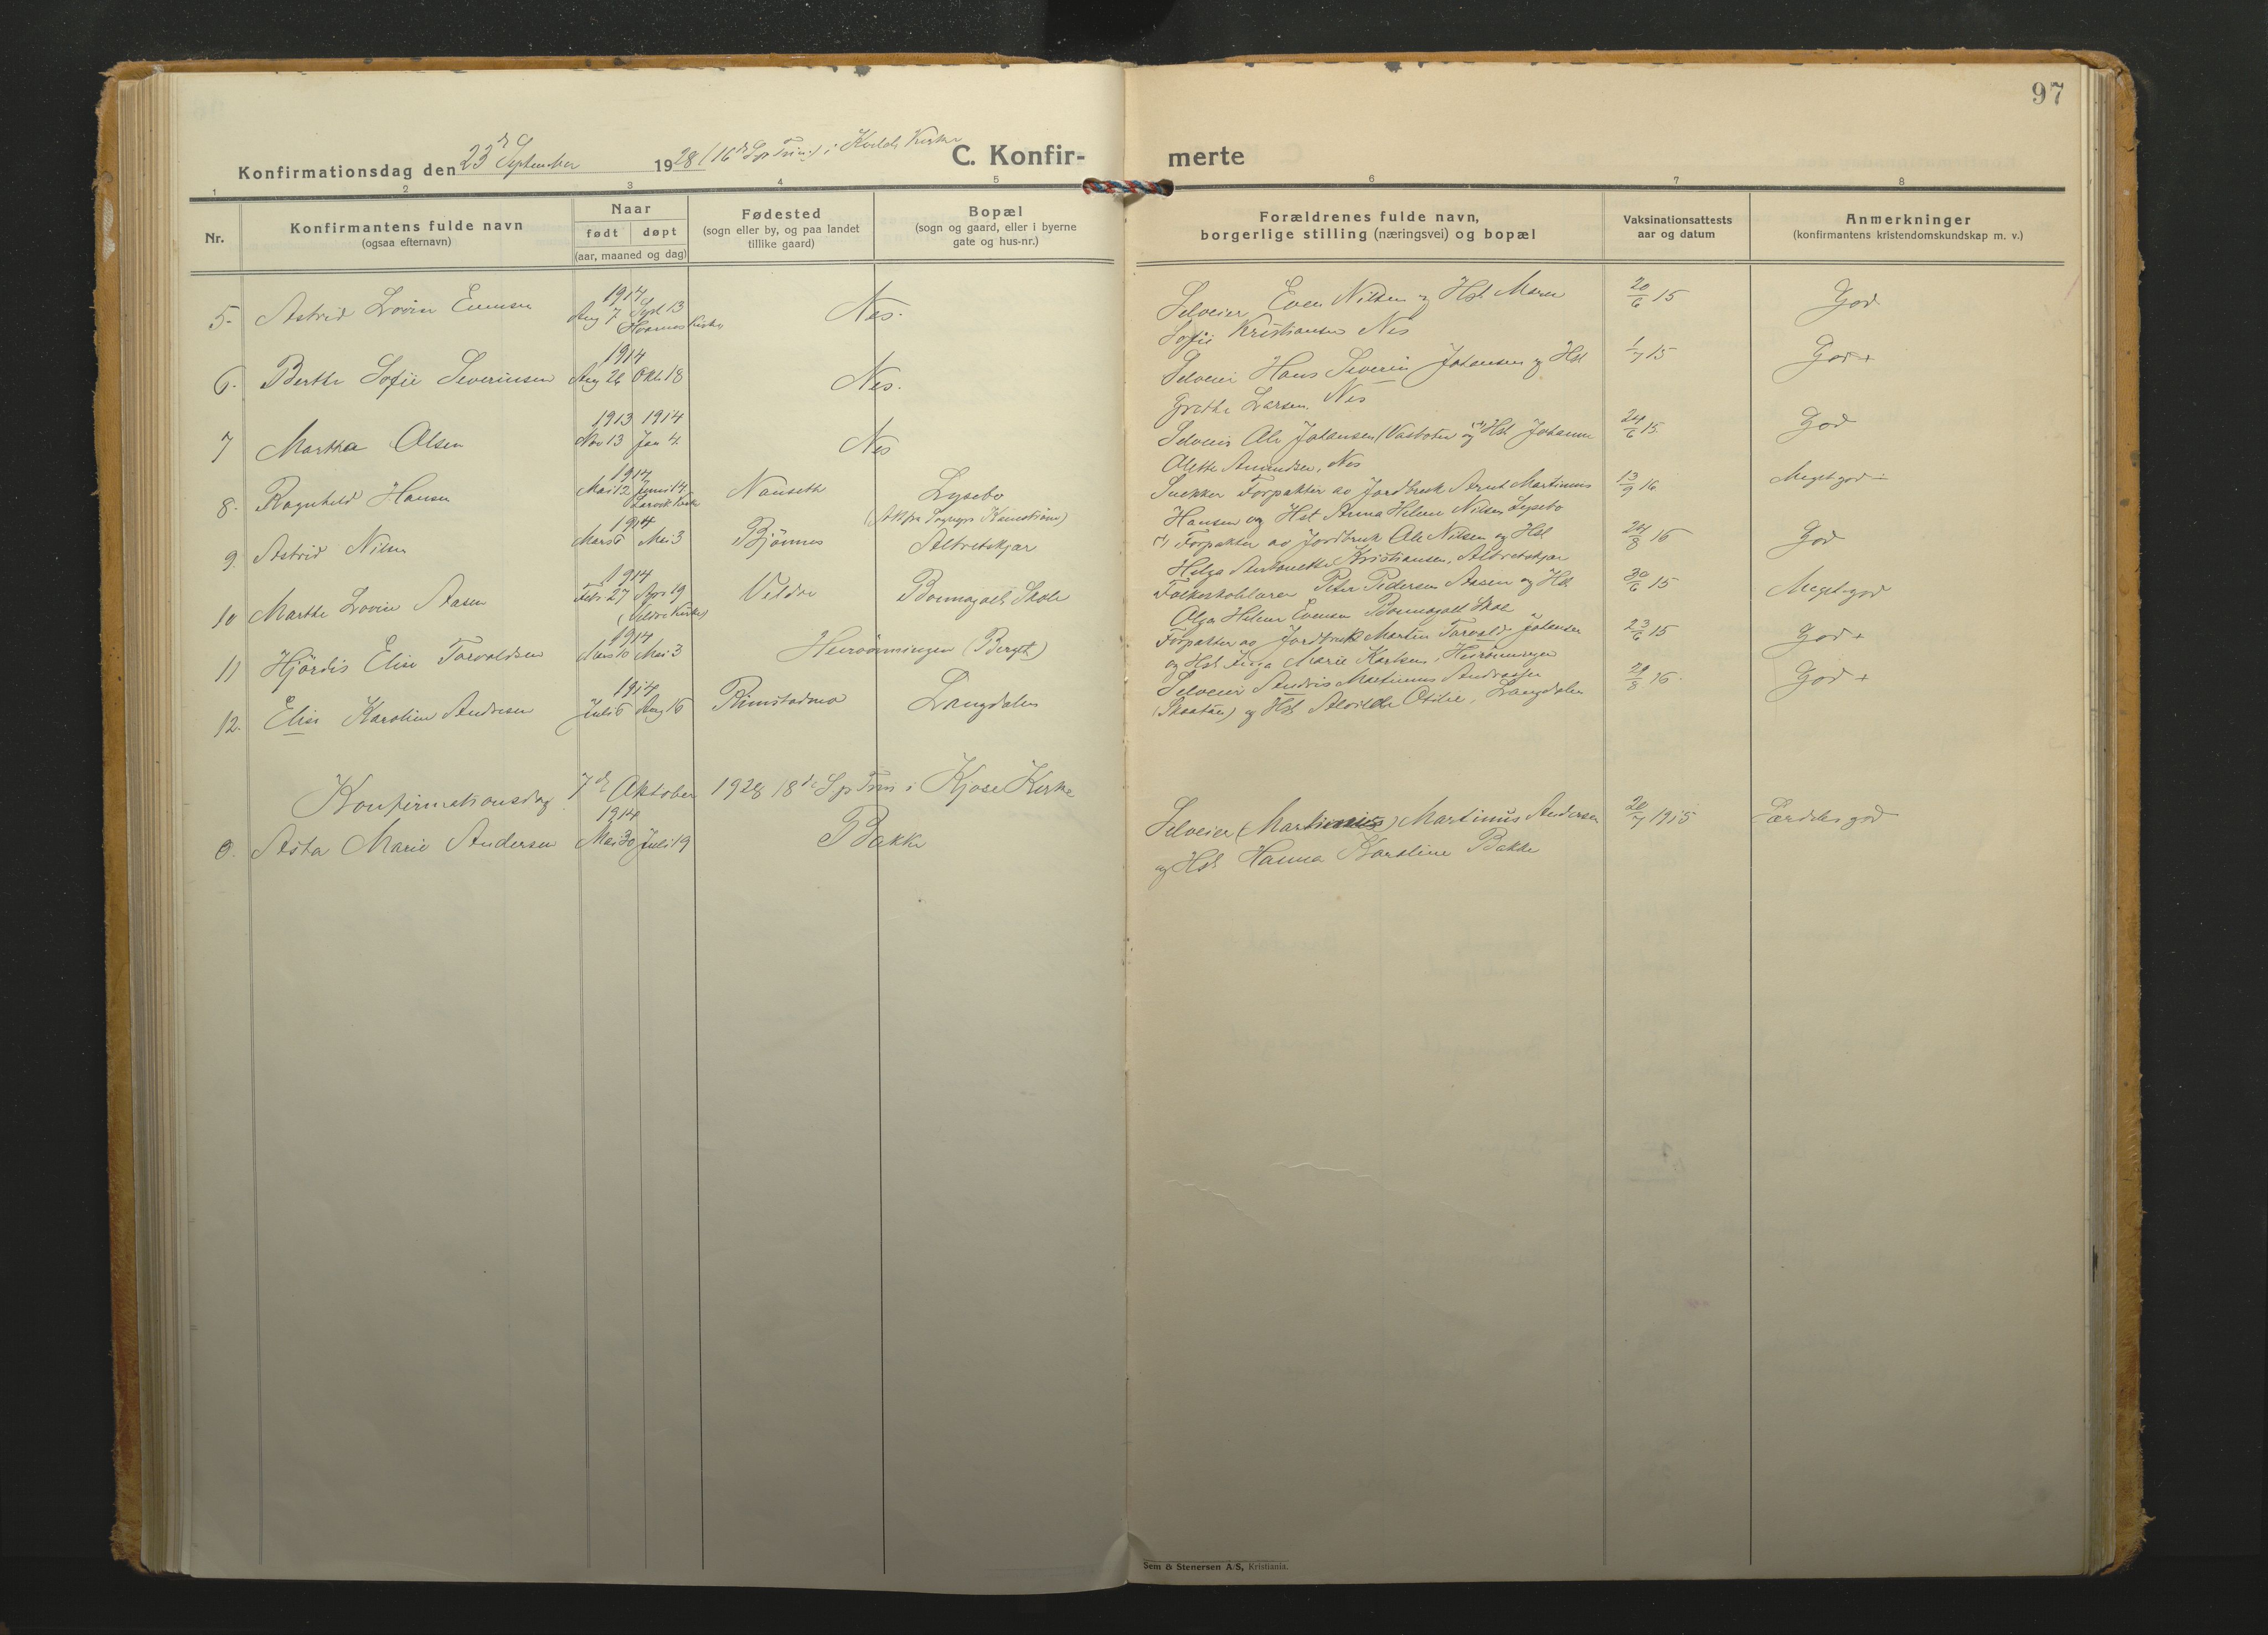 97
Konfirmationsdag den 23 September 1928 (16 S p Trin.) i Kvelde Kirke
C. Konfirmerte
1 2 3 4 5 6 7 8
Nr.
Konfirmantens fulde navn
(ogsaa efternavn)
Naar
født døpt
(aar, maaned og dag)
Fødested
(sogn eller by, og paa landet
tillike gaard)
Bopæl
(sogn og gaard, eller i byerne
gate og hus-nr.)
Forældrenes fulde navn,
borgerlige stilling (næringsvei) og bopæl
Vaksinationsattests
aar og datum
Anmerkninger
(konfirmantens kristendomskundskap m. v.)
1914
5. Astrid Lovise Evensen Aug 7 Sept 13 Nes. Selveier Even Nilsen og Hst Maren 20/6 15 God
Hvarnes Kirke Sofie Kristiansen Nes
1914
6. Berthe Sofie Severinsen Aug 26 Okt. 18 Nes. Selveier Hans Severin Johansen og Hst 1/7 15 God +
Grethe Larsen. Nes
1913 1914
7 Martha Olsen Nov 13 Jan 4. Nes Selveier Ole Johansen (Vasbotn) og Hst Johanne 24/6 15. God
Alette Amundsen, Nes
1914
8. Ragnhild Hansen Mai 12 Juni 14 Nanseth Lysebo Snekker Forpakter av Jordbruk Arnt Martinius 13/9 16 Meget god -
Larvik Kirke Hansen og Hst Anna Helene Nilsen Lysebo
1914
9. Astrid Nilsen Mars 6 Mai 3 Bjönnes Albretskjær Forpakter av Jordbruk Ole Nilsen og Hst 24/8 16 God
Helga Antonette Kristiansen, Albretskjær
1914
10 Marthe Lovise Aasen Feb. 27 Apr 19 Veldre Bommagaelt Skole Folkeskolelærer Peter Pedersen Aasen og Hst 30/6 15 Meget god
(Veldre Kirke) Olga Helene Evensen Skole
1914
11 Hjördis Elise Torvaldsen Mars 10 Mai 3 Heirönningen (Bergt) Forpakter av Jordbruk Martin Torvald Johansen 23/6 15 God +
og Hst Inga Marie Karlsen, Heirönningen
1914
12. Elise Karoline Andresen Juli 5 Aug 16 Rimstadmo Langdalen Selveier Andreas Martinius Andreassen 29/8 16. God +
(Skaatan) og Hst Alvilde Otilie, Langdalen
Konfirmationsdag 7de Oktober 1928 18de S p Trin i Kjose Kirke
1914
6. Asta Marie Andersen Mai 30 Juli 19 Bakke Selveier Martinius Andersen 20/7 1915 Særdeles god
og Hst Hanna Karoline Bakke
Sem & Stenersen A/S, Kristiania.